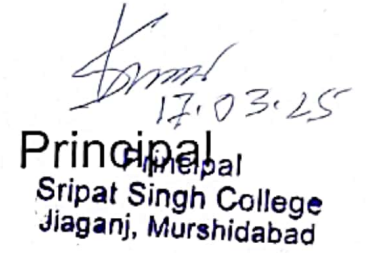 17.03.25
Principal
Principal
Sripat Singh College
Jiaganj, Murshidabad